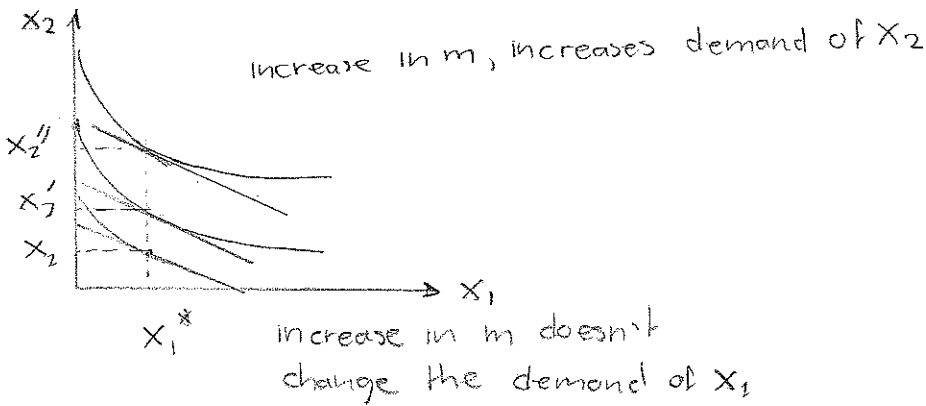 X₂
increase in m, increases demand of X₂
X₂''
X₂'
X₂
X₁
X₁*
increase in m doesn't
change the demand of X₁